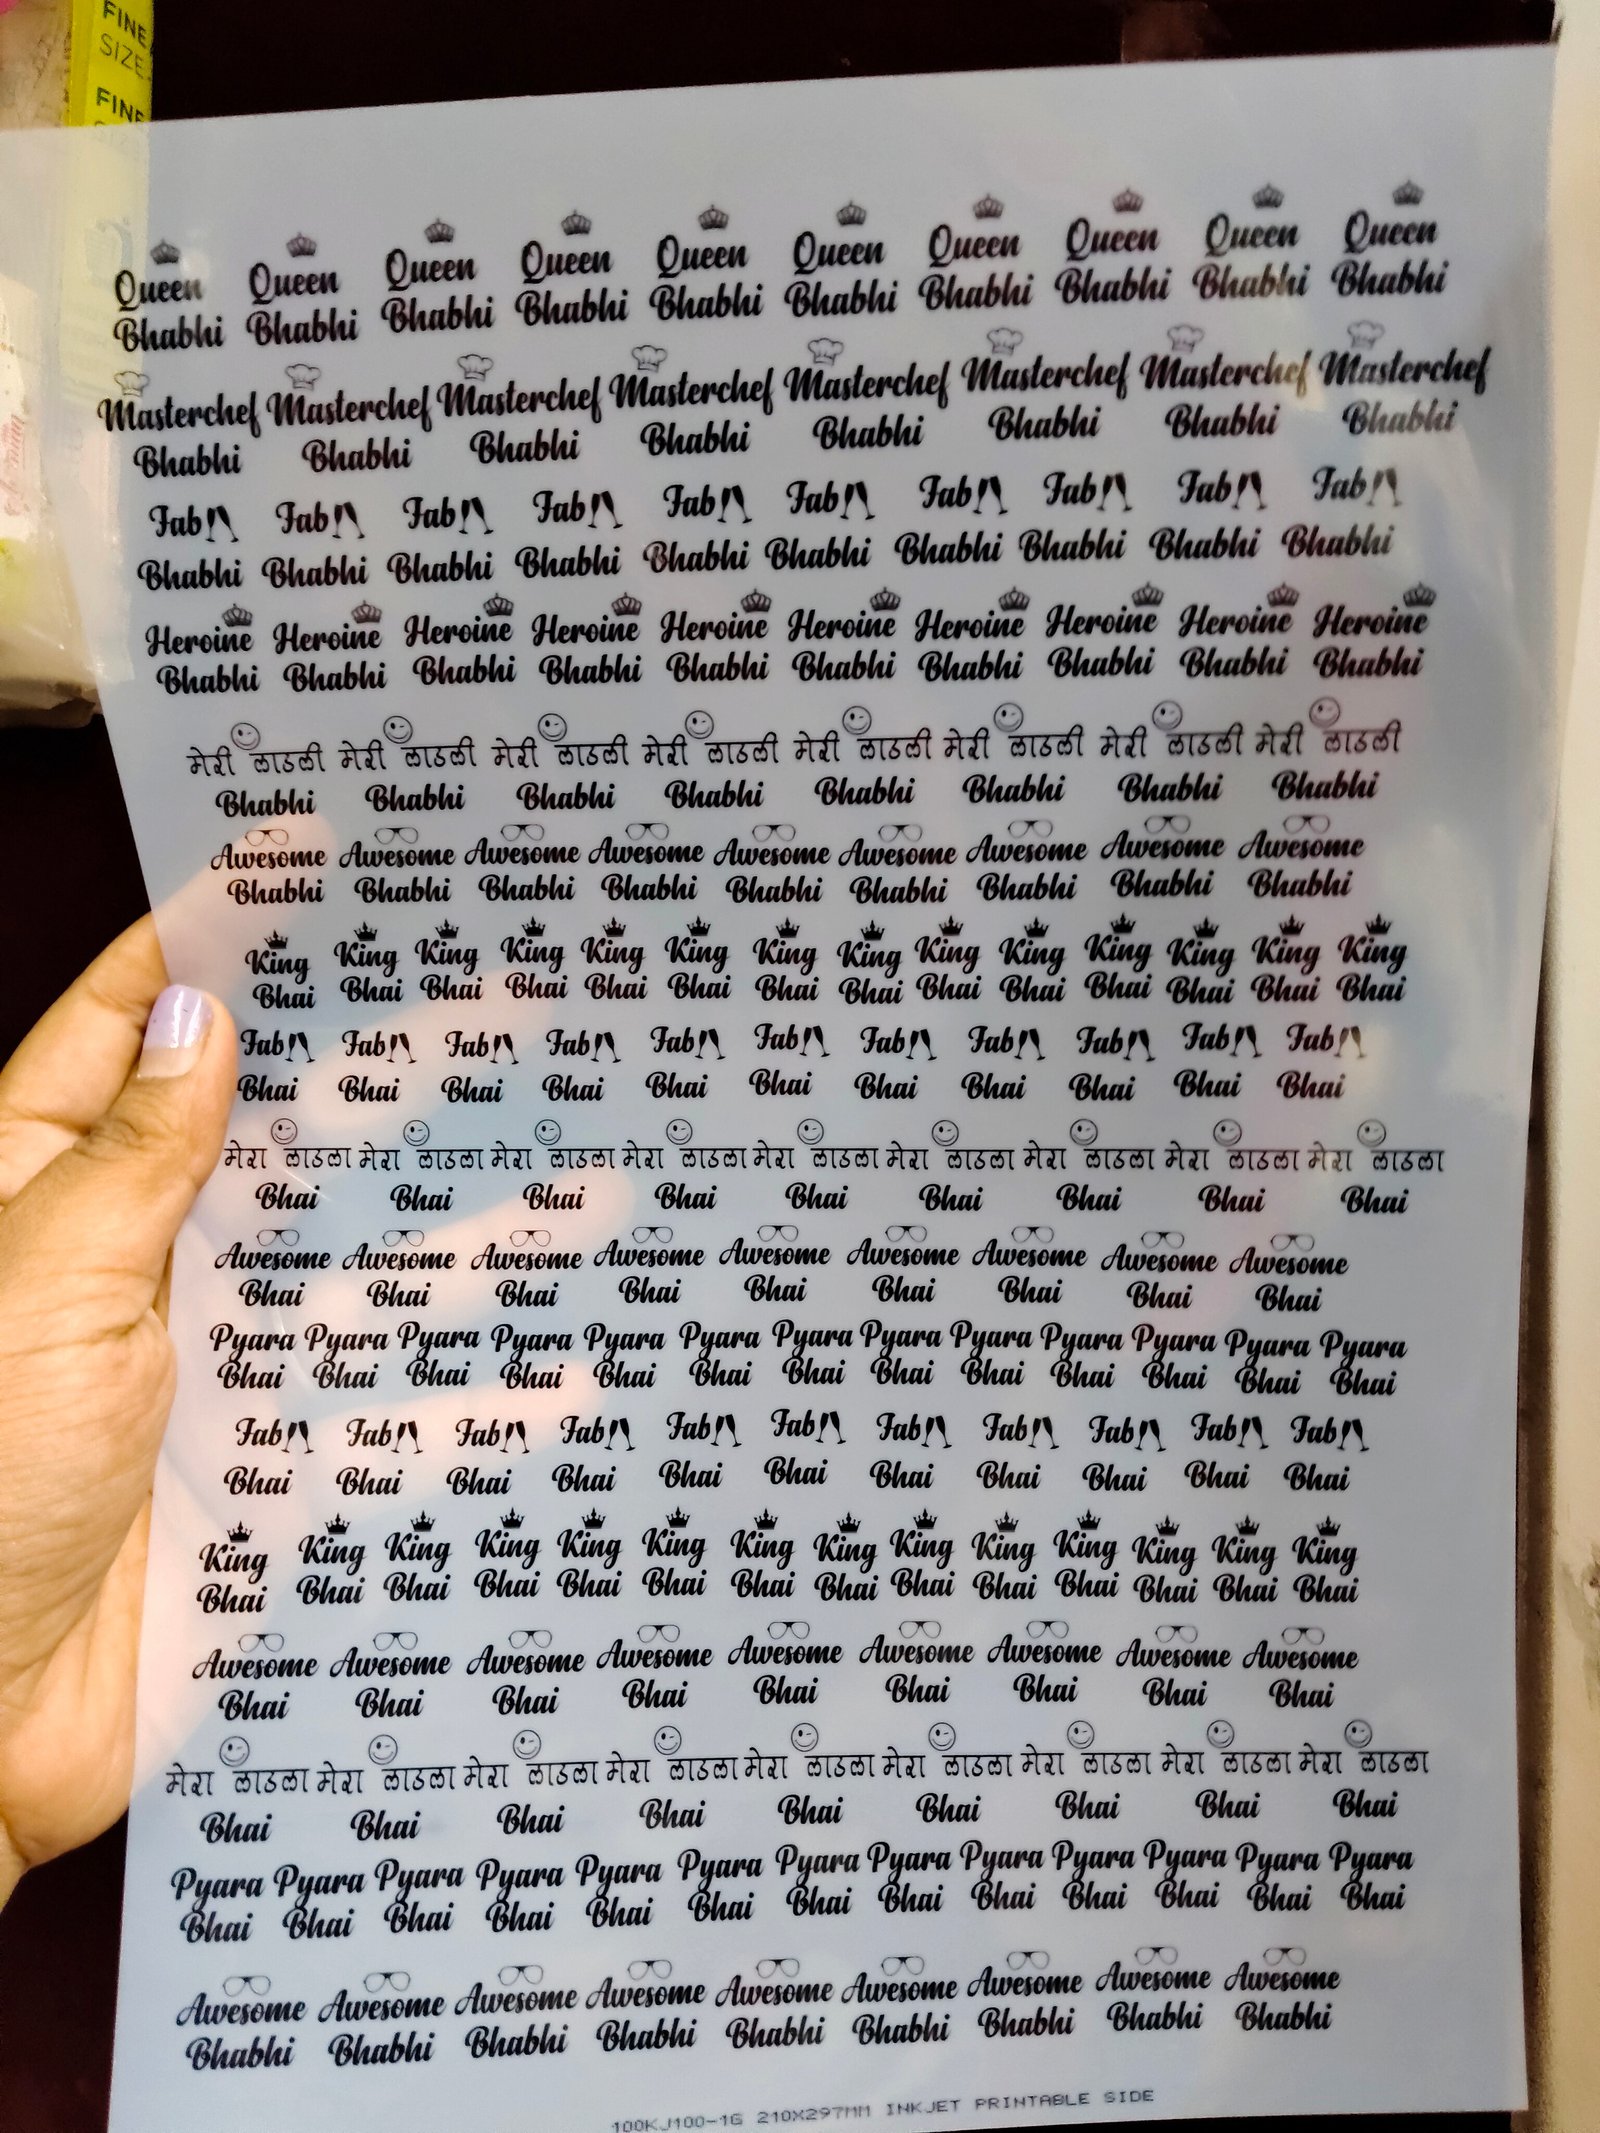 FINE
SIZE
FINE
Queen Queen Queen Queen Queen Queen Queen Queen Queen Queen
Bhabhi Bhabhi Bhabhi Bhabhi Bhabhi Bhabhi Bhabhi Bhabhi Bhabhi Bhabhi
Masterchef Masterchef Masterchef Masterchef Masterchef Masterchef Masterchef Masterchef
Bhabhi Bhabhi Bhabhi Bhabhi Bhabhi Bhabhi Bhabhi Bhabhi
Fab Fab Fab Fab Fab Fab Fab Fab Fab Fab
Bhabhi Bhabhi Bhabhi Bhabhi Bhabhi Bhabhi Bhabhi Bhabhi Bhabhi Bhabhi
Heroine Heroine Heroine Heroine Heroine Heroine Heroine Heroine Heroine Heroine
Bhabhi Bhabhi Bhabhi Bhabhi Bhabhi Bhabhi Bhabhi Bhabhi Bhabhi Bhabhi
मेरी लाडली मेरी लाडली मेरी लाडली मेरी लाडली मेरी लाडली मेरी लाडली मेरी लाडली मेरी लाडली
Bhabhi Bhabhi Bhabhi Bhabhi Bhabhi Bhabhi Bhabhi Bhabhi
Awesome Awesome Awesome Awesome Awesome Awesome Awesome Awesome Awesome
Bhabhi Bhabhi Bhabhi Bhabhi Bhabhi Bhabhi Bhabhi Bhabhi Bhabhi
King King King King King King King King King King King King King King
Bhai Bhai Bhai Bhai Bhai Bhai Bhai Bhai Bhai Bhai Bhai Bhai Bhai Bhai
Fab Fab Fab Fab Fab Fab Fab Fab Fab Fab Fab
Bhai Bhai Bhai Bhai Bhai Bhai Bhai Bhai Bhai Bhai Bhai
मेरा लाडला मेरा लाडला मेरा लाडला मेरा लाडला मेरा लाडला मेरा लाडला मेरा लाडला मेरा लाडला मेरा लाडला
Bhai Bhai Bhai Bhai Bhai Bhai Bhai Bhai Bhai
Awesome Awesome Awesome Awesome Awesome Awesome Awesome Awesome Awesome
Bhai Bhai Bhai Bhai Bhai Bhai Bhai Bhai Bhai
Pyara Pyara Pyara Pyara Pyara Pyara Pyara Pyara Pyara Pyara Pyara Pyara Pyara
Bhai Bhai Bhai Bhai Bhai Bhai Bhai Bhai Bhai Bhai Bhai Bhai Bhai
Fab Fab Fab Fab Fab Fab Fab Fab Fab Fab Fab
Bhai Bhai Bhai Bhai Bhai Bhai Bhai Bhai Bhai Bhai Bhai
King King King King King King King King King King King King King King
Bhai Bhai Bhai Bhai Bhai Bhai Bhai Bhai Bhai Bhai Bhai Bhai Bhai Bhai
Awesome Awesome Awesome Awesome Awesome Awesome Awesome Awesome Awesome
Bhai Bhai Bhai Bhai Bhai Bhai Bhai Bhai Bhai
मेरा लाडला मेरा लाडला मेरा लाडला मेरा लाडला मेरा लाडला मेरा लाडला मेरा लाडला मेरा लाडला मेरा लाडला
Bhai Bhai Bhai Bhai Bhai Bhai Bhai Bhai Bhai
Pyara Pyara Pyara Pyara Pyara Pyara Pyara Pyara Pyara Pyara Pyara Pyara Pyara
Bhai Bhai Bhai Bhai Bhai Bhai Bhai Bhai Bhai Bhai Bhai Bhai Bhai
Awesome Awesome Awesome Awesome Awesome Awesome Awesome Awesome Awesome
Bhabhi Bhabhi Bhabhi Bhabhi Bhabhi Bhabhi Bhabhi Bhabhi Bhabhi
100KJ100-1G 210X297MM INKJET PRINTABLE SIDE